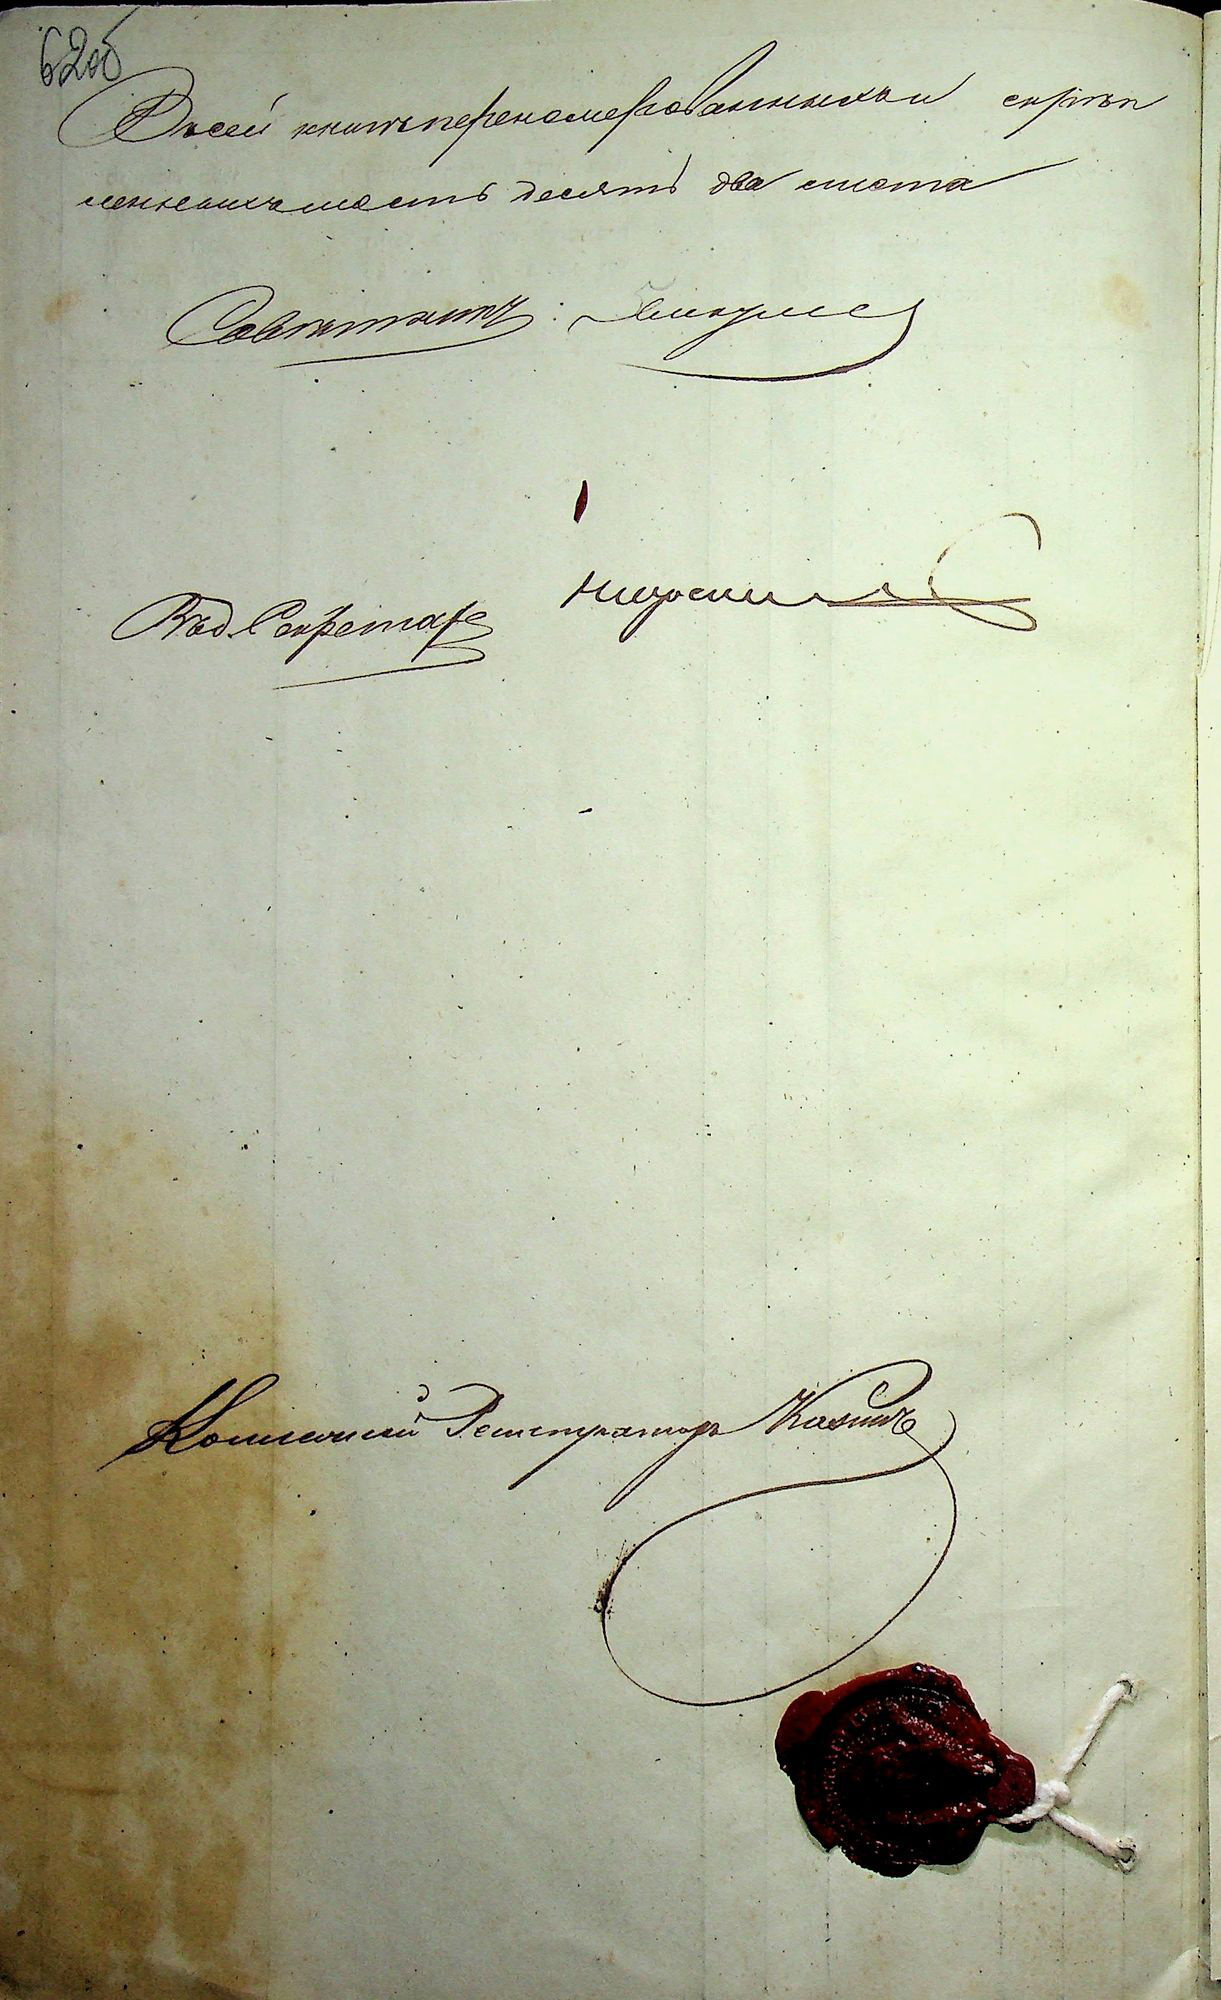 62об
Въ сей книгѣ перенумерованныхъ и скрѣп
ленныхъ шесть десятъ два листа
Совѣтникъ:
За Секретаря
Коллежскій Регистраторъ